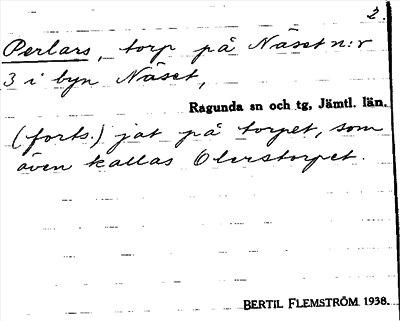 2.
Perlars, torp på Näset n:r
3 i byn Näset,
Ragunda sn och tg, Jämtl. län.
(forts.) jat på torpet, som
även kallas Olerstorpet.
BERTIL FLEMSTRÖM 1938.